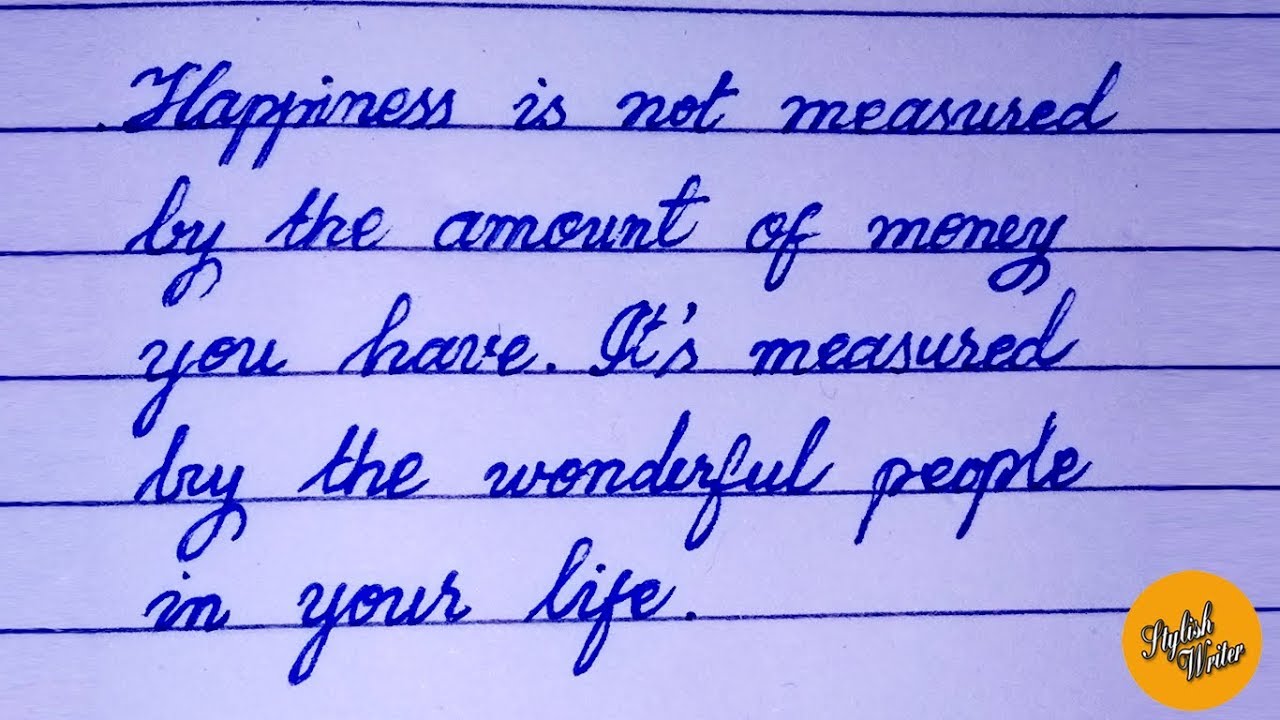 Happiness is not measured
by the amount of money
you have. It's measured
by the wonderful people
in your life.
Stylish
Writer